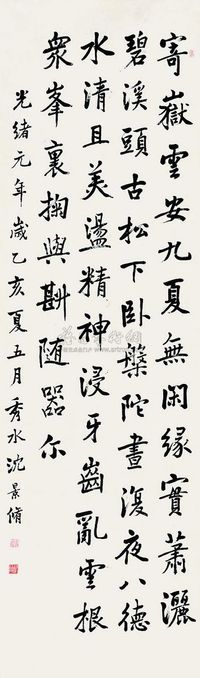 寄嶽雲安九夏無閑緣實蕭灑
碧溪頭古松下卧槃陀晝復夜八德
水清且美盪精神浸牙齒亂雲根
衆峯裏掬與斟随器尒
光緒元年歲乙亥夏五月秀水沈景脩